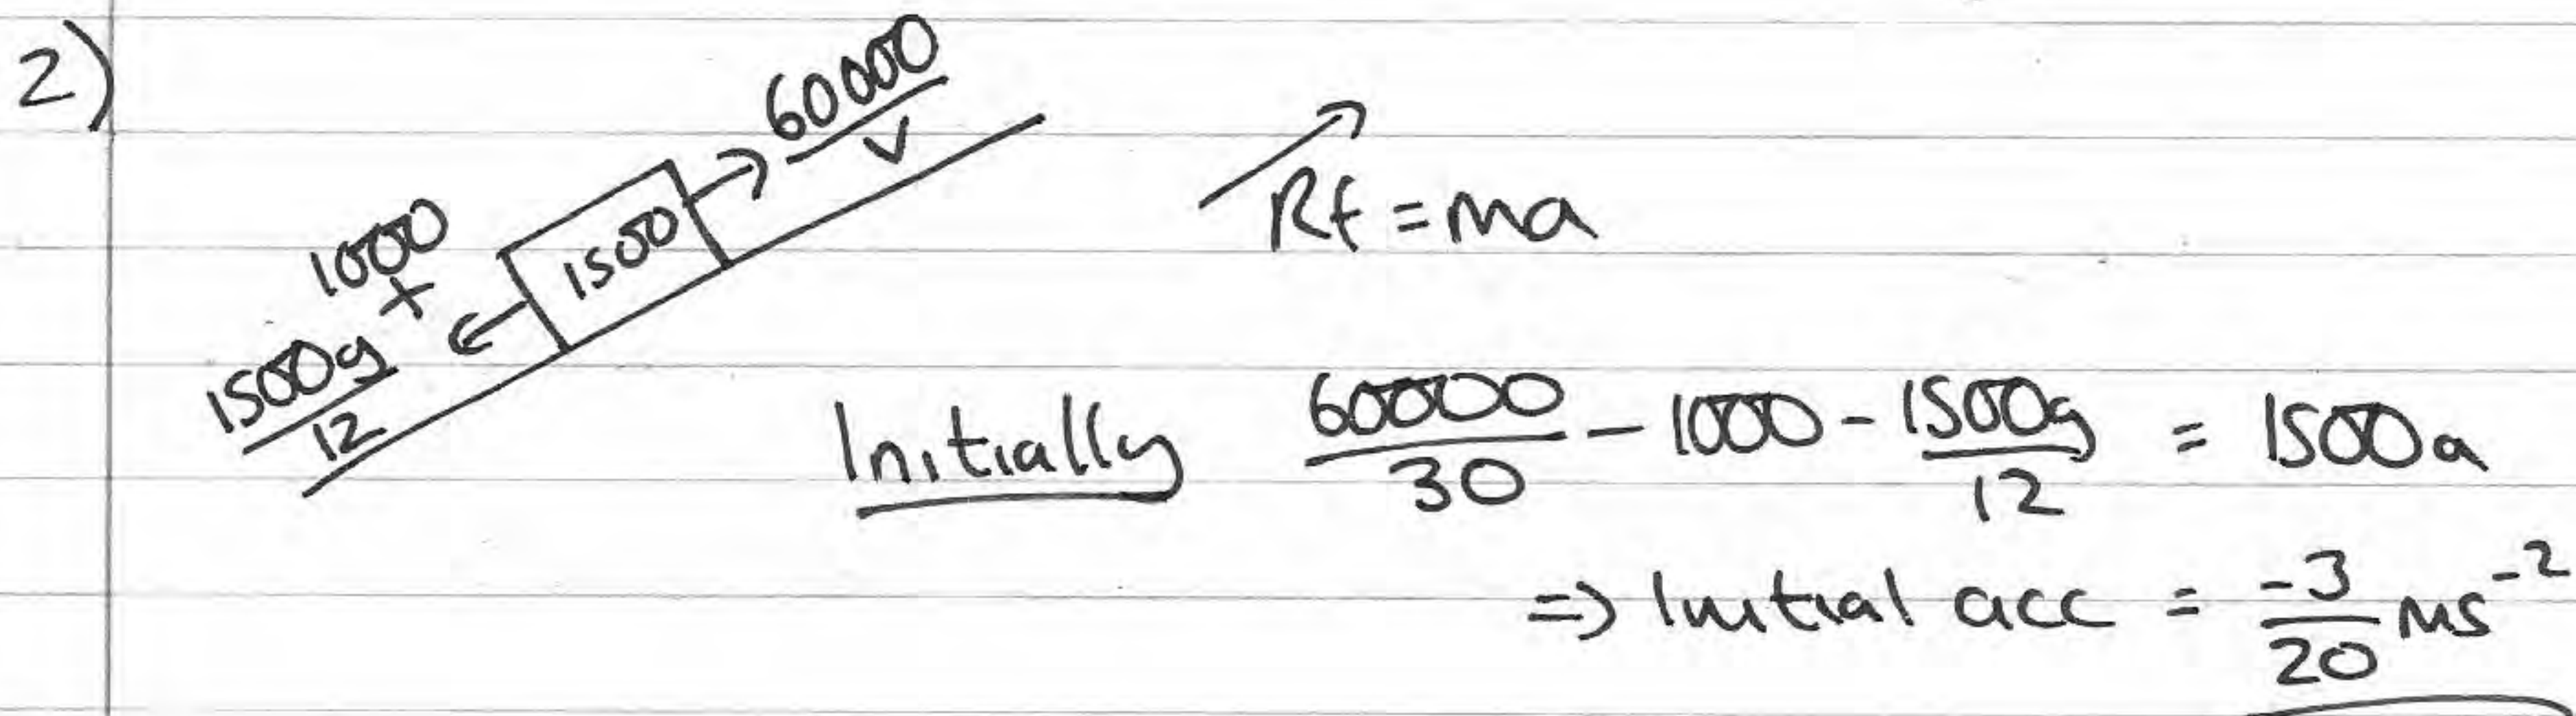 2)
60000/v
1000
+
1500g/12
1500
Rf = ma
Initially 60000/30 - 1000 - 1500g/12 = 1500a
=> Initial acc = -3/20 ms^-2